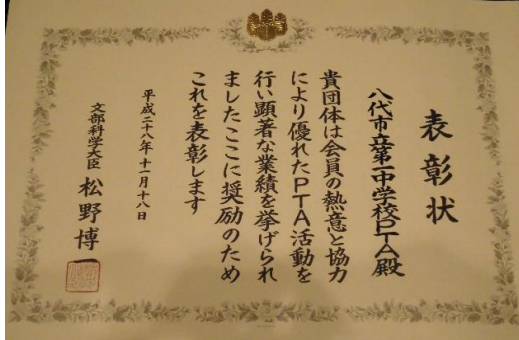 表彰状
八代市立第一中学校PTA殿
貴団体は会員の熱意と協力
により優れたPTA活動を
行い顕著な業績を挙げられ
ましたここに奨励のため
これを表彰します
平成二十八年十一月十八日
文部科学大臣 松野博